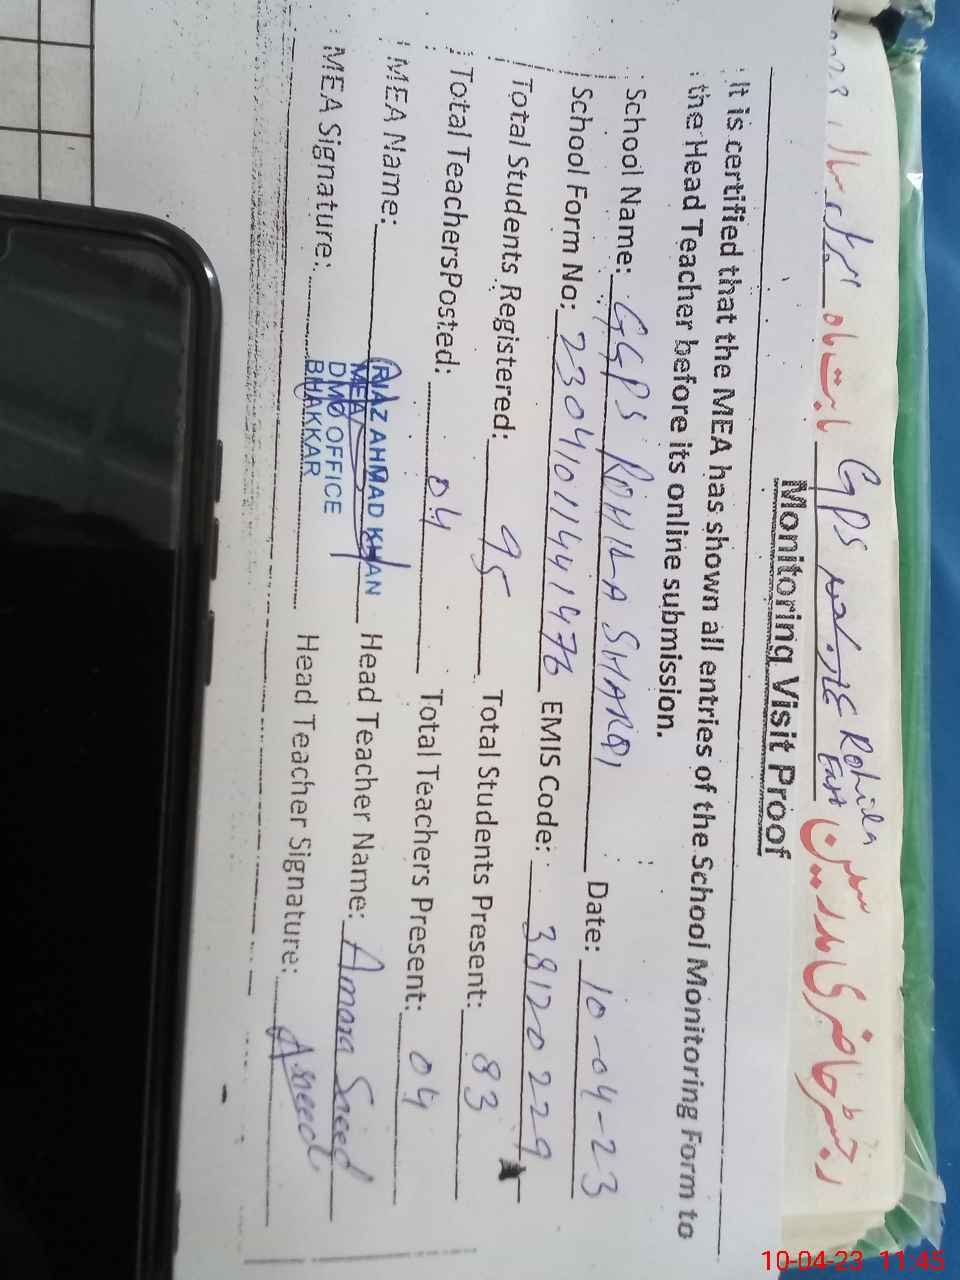 رجسٹر حاضری طلبہ مدرسین GPS Rohila
East
Monitoring Visit Proof
It is certified that the MEA has shown all entries of the School Monitoring Form to
the Head Teacher before its online submission.
School Name: GGPS ROHILA SHARQI Date: 10-04-23
School Form No: 23041011441476 EMIS Code: 38120229
Total Students Registered: 95 Total Students Present: 83
Total TeachersPosted: 04 Total Teachers Present: 04
MEA Name: RIAZ AHMAD KHAN Head Teacher Name: Amara Saeed
MEA
DMO OFFICE
BHAKKAR
MEA Signature: Head Teacher Signature: Asaeed
10-04-23 11:45